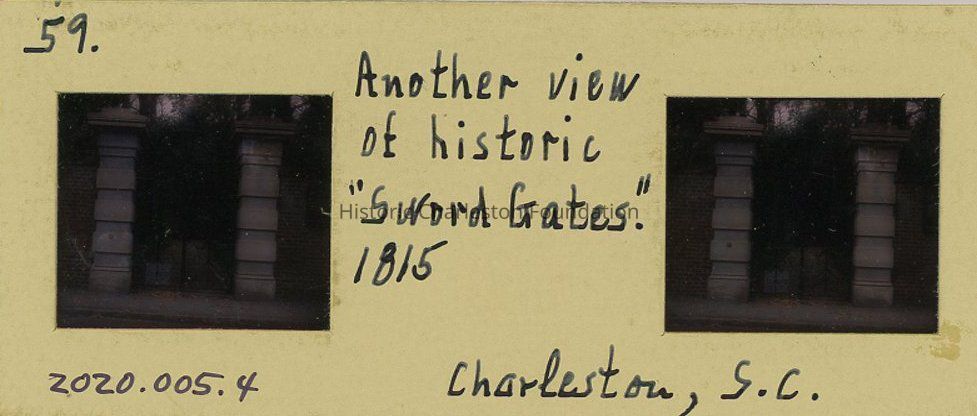 59.
Another view
of historic
"Sword Gates."
Historic Charleston Foundation
1815
2020.005.4
Charleston, S.C.